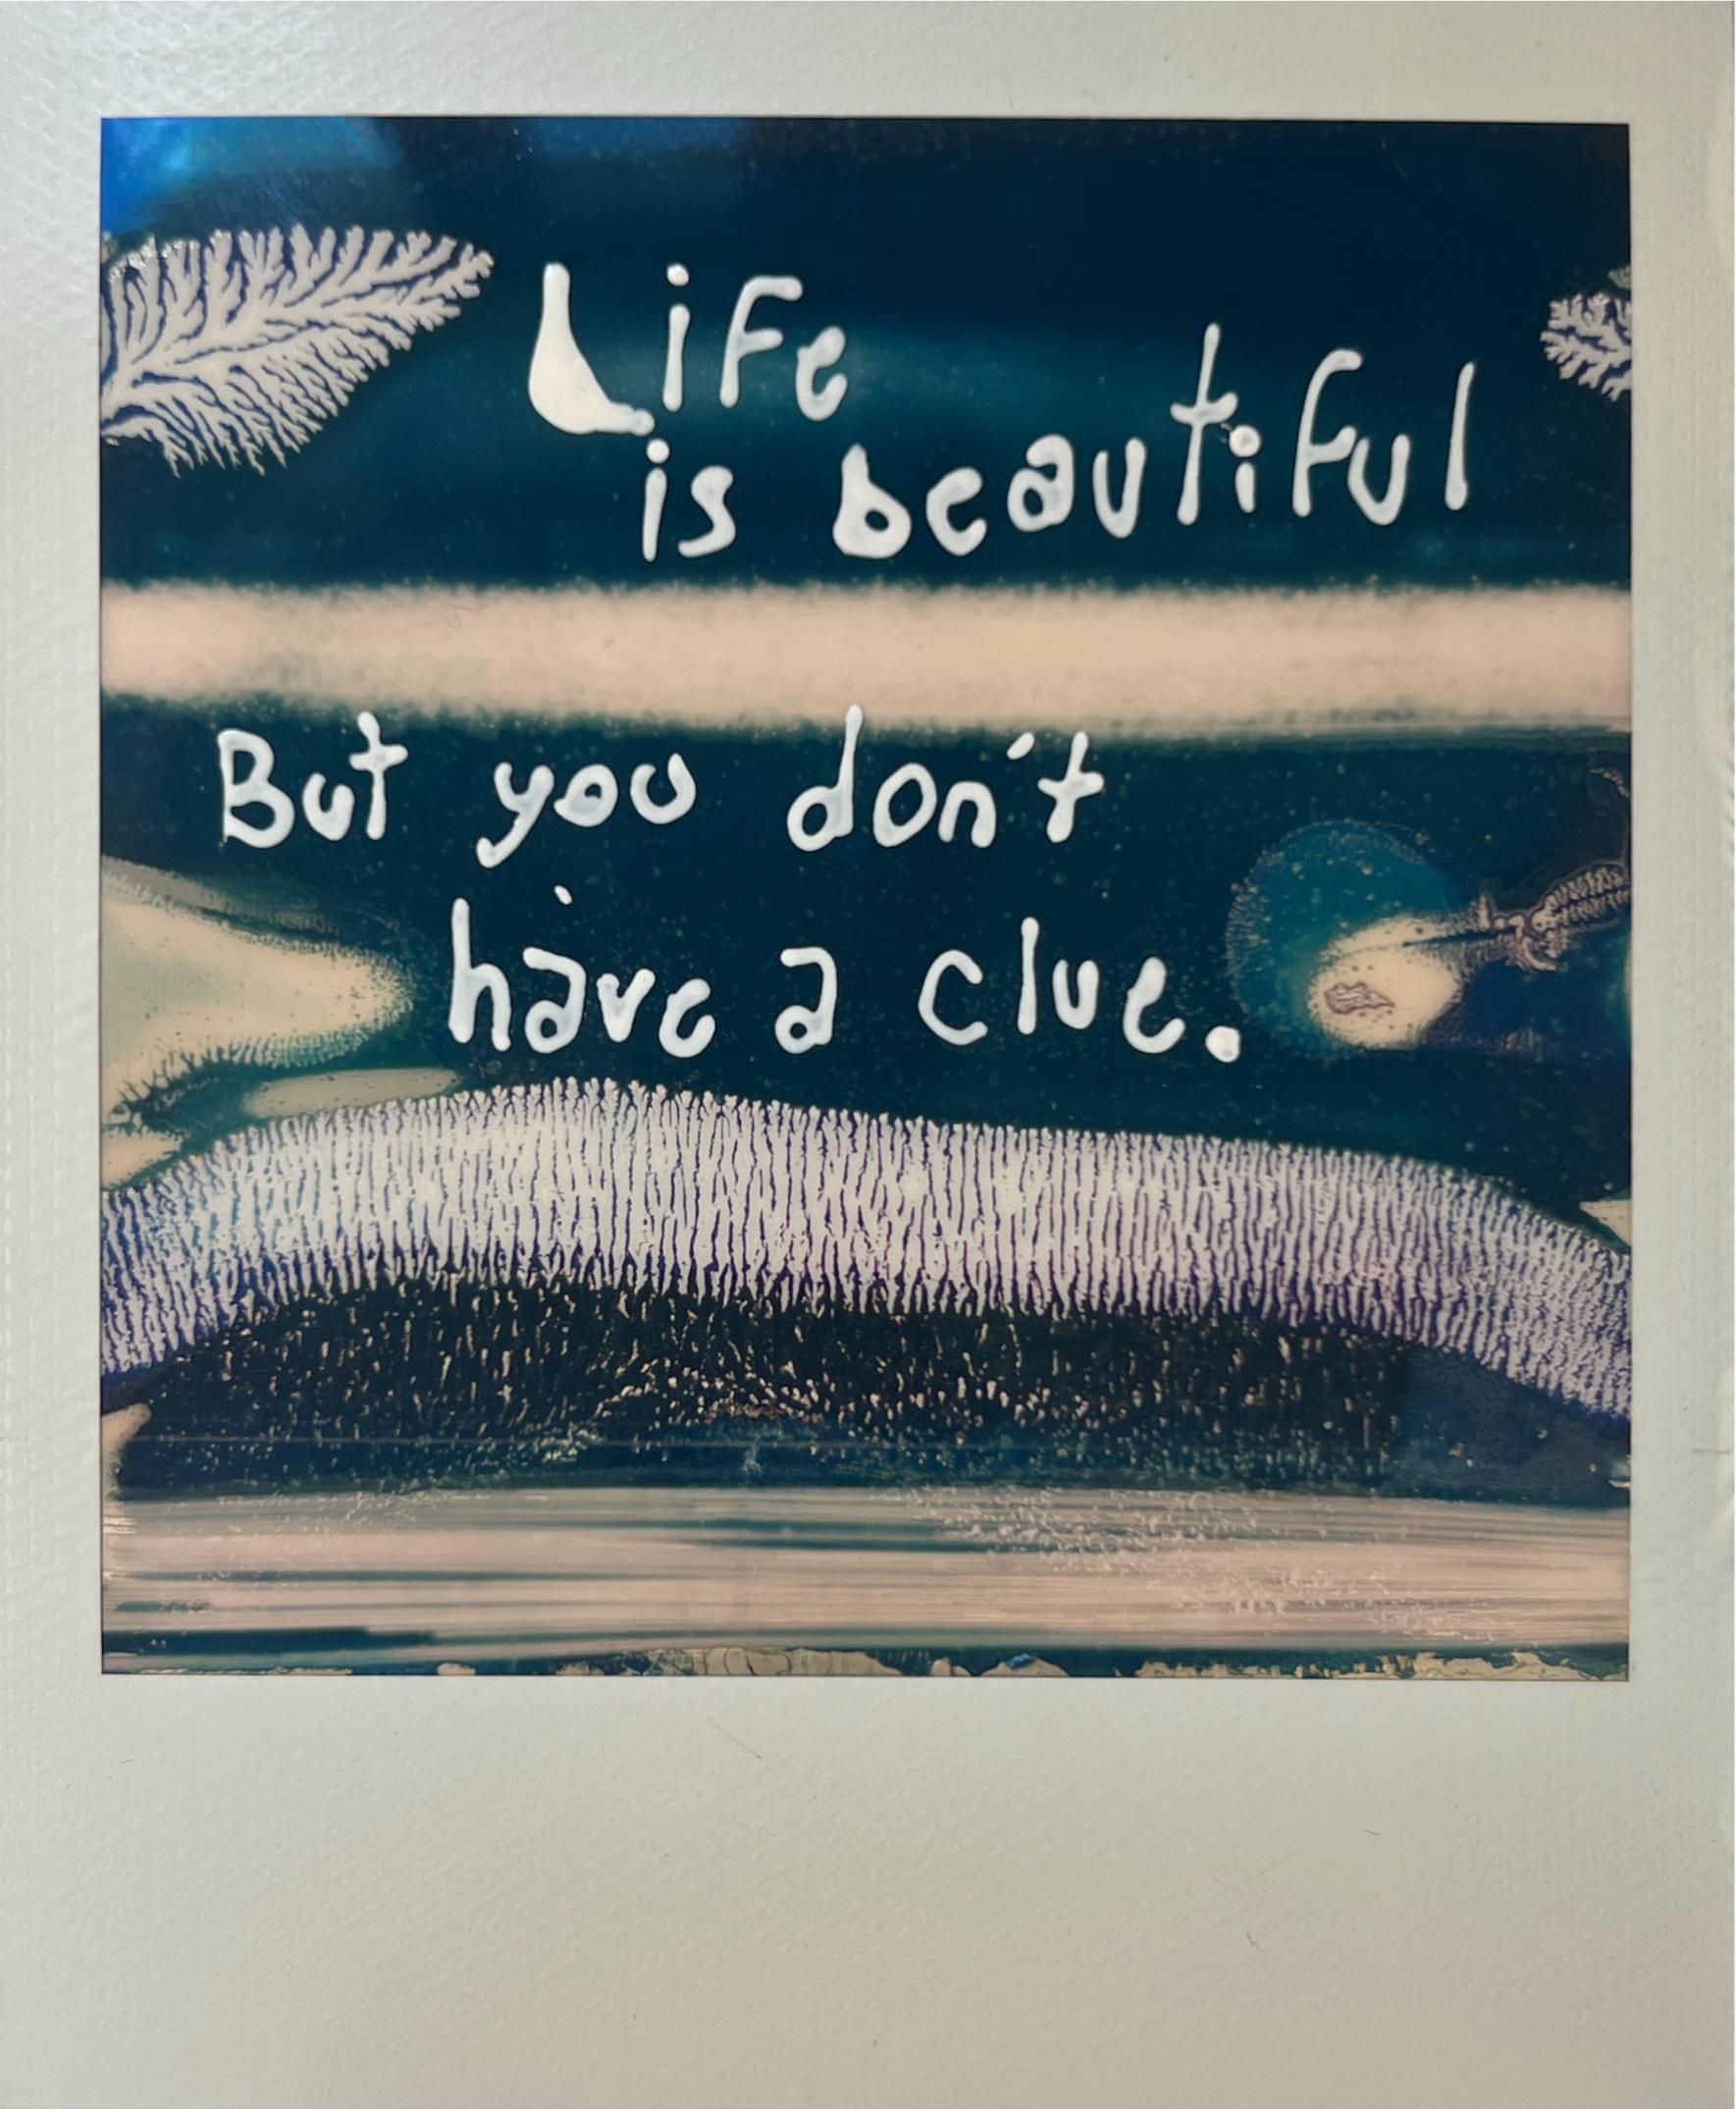 Life
is beautiful
But you don't
have a clue.